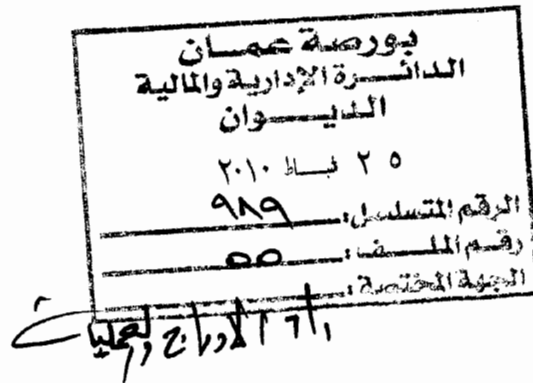 بورصة عمان
الدائرة الإدارية والمالية
الديوان
٢٥ شباط ٢٠١٠
الرقم المتسلسل: ٩٨٩
رقم الملف: ٥٥
الجهة المختصة:
الادراج والعمليات